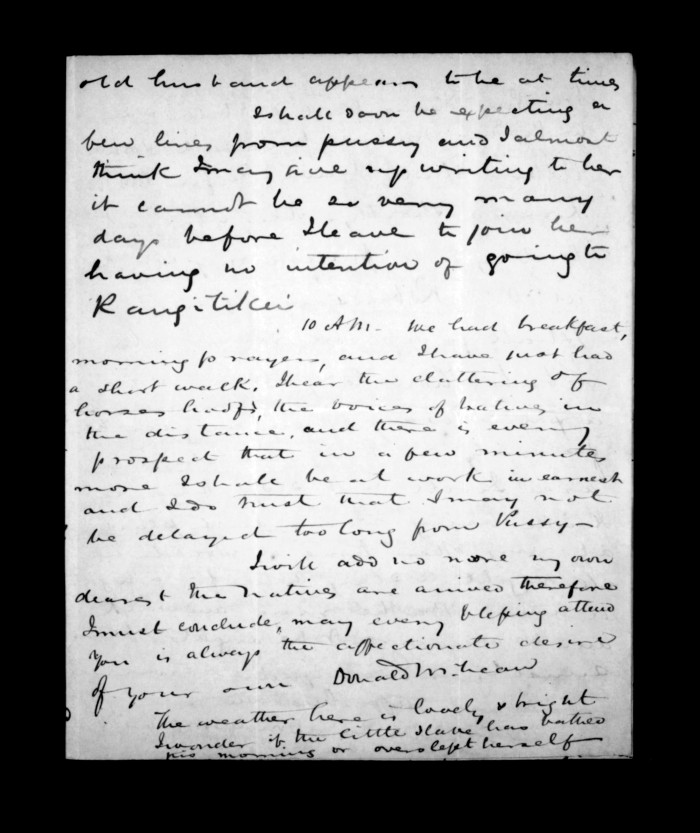 old husband appears to be at times
I shall soon be expecting a
few lines from pussy and I almost
think I may give up writing to her
it cannot be so very many
days before I leave to join her
having no intention of going to
Rangitikei
10 AM - We had breakfast,
morning prayers, and I have just had
a short walk. I hear the clattering of
horses hoofs, the voices of Natives in
the distance, and there is every
prospect that in a few minutes
more I shall be at work in earnest
and I do trust that I may not
be delayed too long from Pussy -
I will add no more my own
dearest the Natives are arrived therefore
I must conclude, may every blessing attend
you is always the affectionate desire
of your own Donald McLean
The weather here is lovely & bright
I wonder if the little Slave has bathed
this morning or overslept herself